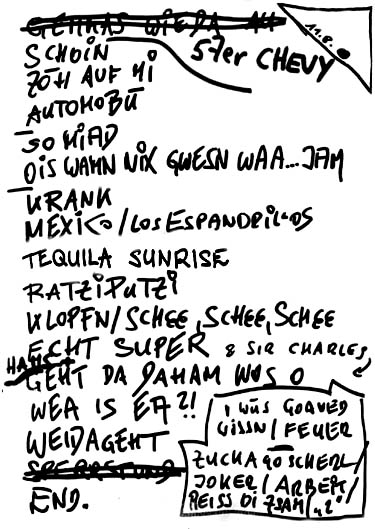 GEHMAS WIEDA AN
SCHOIN
57er CHEVY
11.8.
ZÖH AUF MI
AUTOMOBÜ
SO MIAD
OIS WAHN NIX GWESN WAA...JAM
KRANK
MEXICO/LOS ESPANDRILLOS
TEQUILA SUNRISE
RATZIPUTZI
KLOPFN/SCHEE, SCHEE, SCHEE
ECHT SUPER & SIR CHARLES
HANS
GEHT DA DAHAM WOS O
WEA IS EA?!
WEIDAGEHT
SPERRSTUND
END.
I WÜS GORNED
WISSN/FEUER
ZUCKAGOSCHERL/
JOKER/ARBEIT/
REISS DI ZSAM "2"